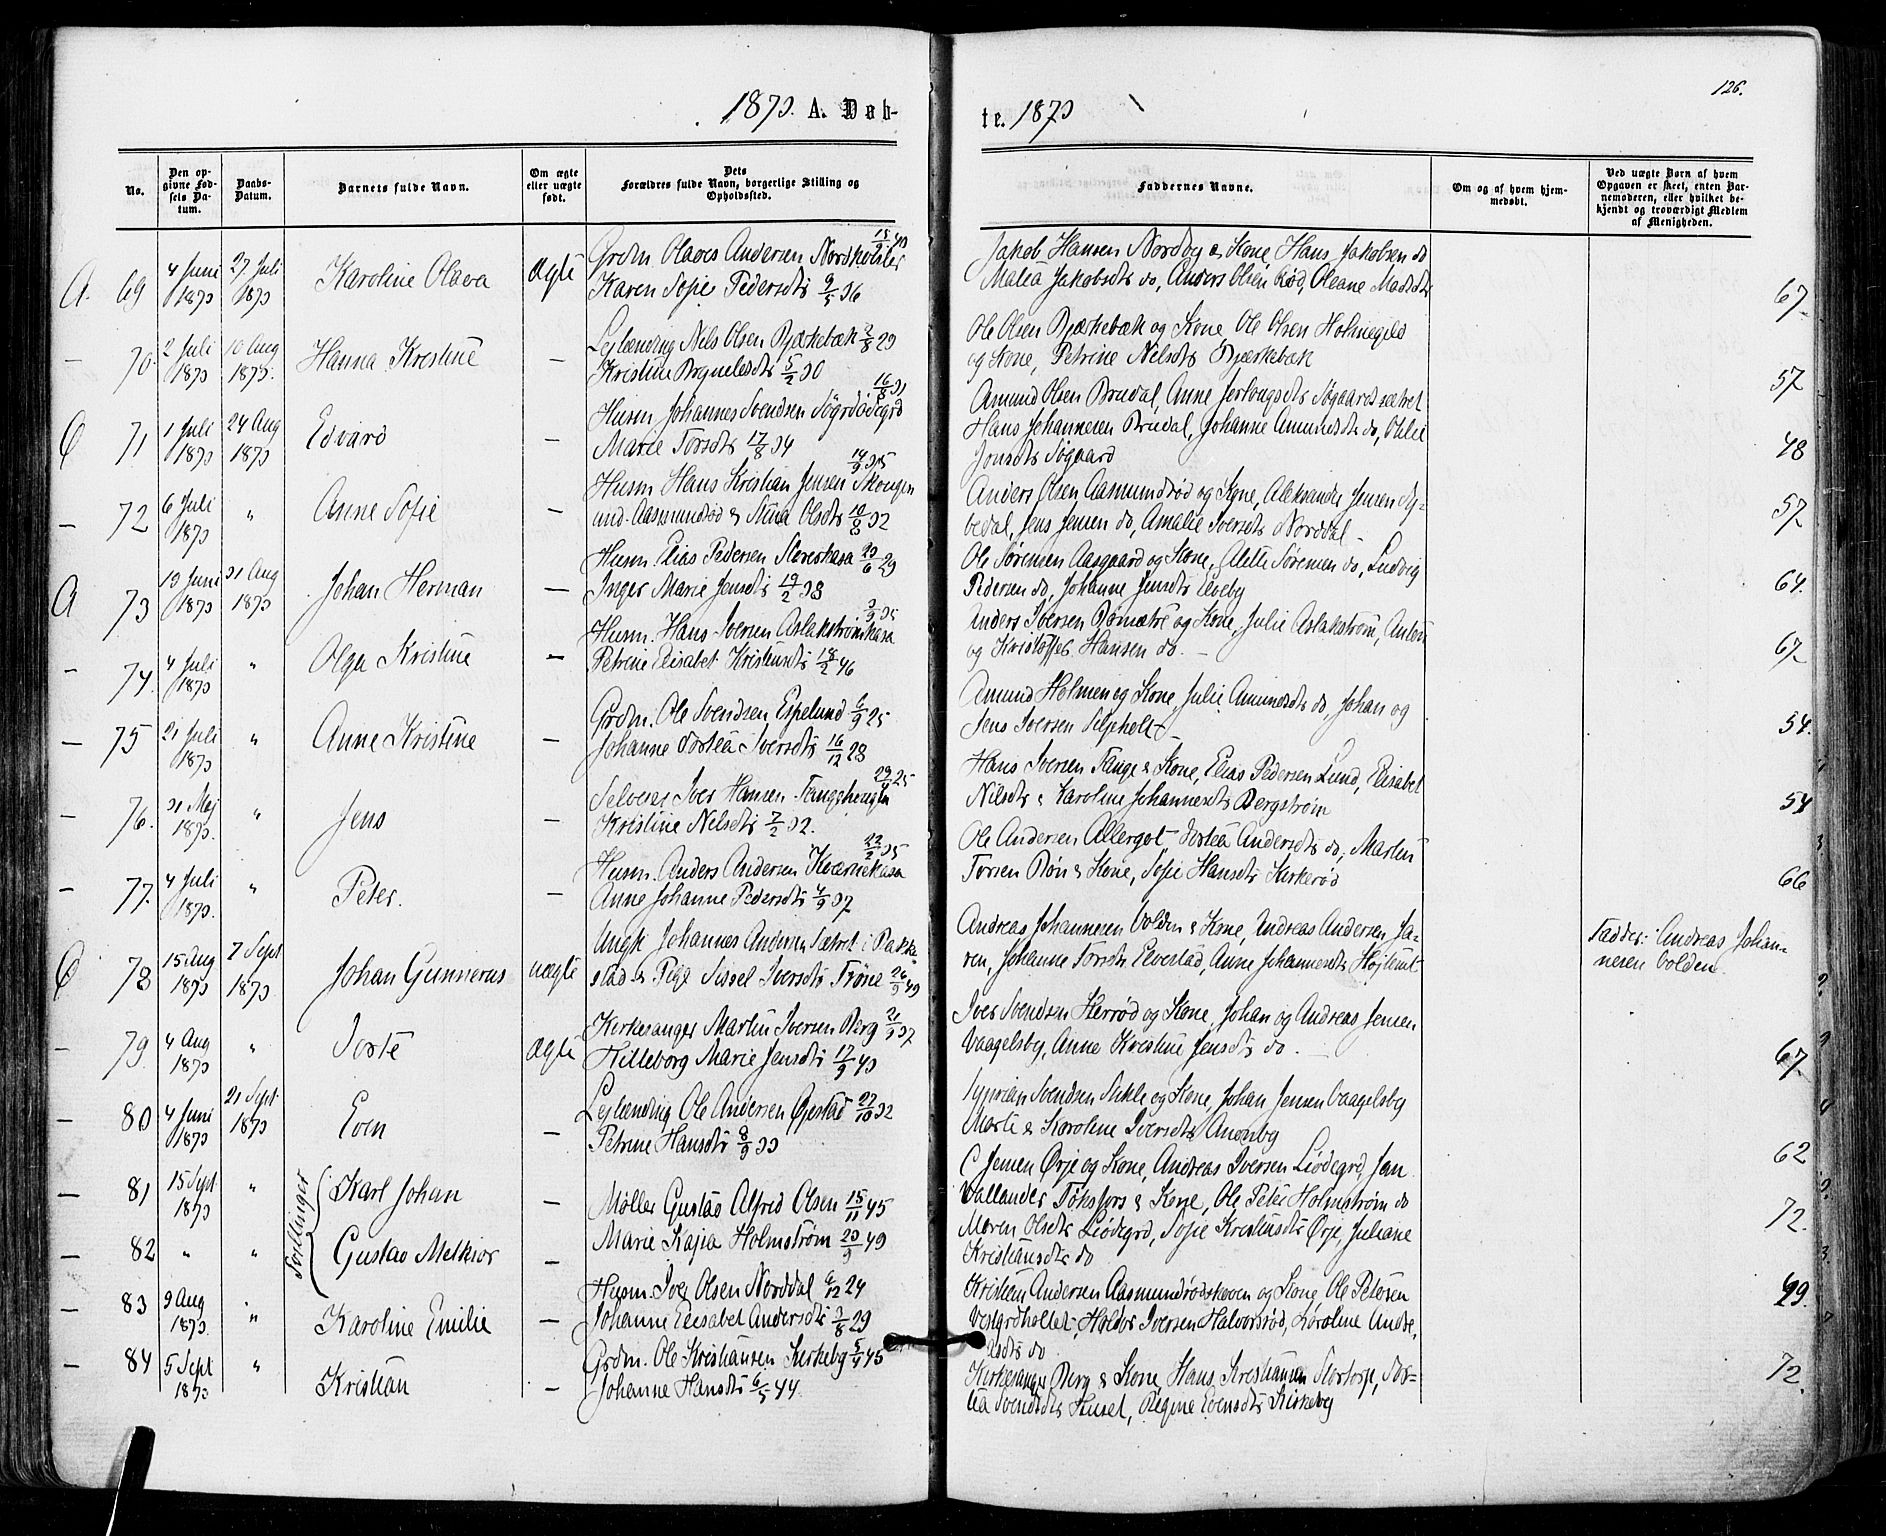 126.
1873. A. Døb-
te. 1873
No.
Den op-
givne Fød-
sels Da-
tum.
Daabs-
Datum.
Barnets fulde Navn.
Om ægte
eller uægte
født.
Dets
Forældres fulde Navn, borgerlige Stilling og
Opholdssted.
Faddernes Navne.
Om og af hvem hjem-
medøbt.
Ved uægte Børn af hvem
Opgaven er skeet, enten Bar-
nemoderen, eller hvilket be-
kjendt og troværdigt Medlem
af Menigheden.
A. 69 4 Juni 1873 27 Juli 1873 Karoline Olava Ægte
Grdm. Olaves Andersen
Karen Sofie Pedersdtr 9/5 36
Jakob Hansen Nordby & Kone, Hans Jakobsen do
Malea Jakobsdtr do, Anders Olsen Rød, Oleane Madsdtr
67
— 70. 2 Juli 1873 10 Aug 1873. Hanna Kristine —
Leilænding Nils Olsen Bjærkebæk 2/8 29
Kristine 5/2 30
Ole Olsen Bjærkebæk og Kone, Ole Olsen Holmegild
og Kone, Petrine Nilsdtr Bjærkebæk
57
C 71 1 Juli 1873 24 Aug 1873 Edvard —
16/8 31
Husm. Johannes Svendsen
Marie Torsdtr 17/8 34
Amund Olsen Brudal, Anne
Hans Johannesen Brudal, Johanne Amundsdtr do,
Jonsdtr Søgaard
48
— 72 6 Juli 1873 " Anne Sofie —
14/9 35
Husm Hans Kristian Jensen Skougen
und. Aasmundrød & Stina Olsdtr 10/8 32
Anders Olsen Aasmundrød og Kone, Aleksander Jensen Ny-
bedal, Jens Jensen do, Amalie Iversdtr Norddal —
57
A 73 13 Juni 1873 31 Aug 1873 Johan Herman —
Husm. Elias Pedersen 20/6 29
Inger Marie Jensdtr 19/2 38
Ole Sørensen Aasgaard og Kone, Alette Sørensen do, Ludvig
Pedersen do, Johanne Jensdtr Elveby
64.
— 74. 4 Juli 1873 " Olga Kristine —
3/9 35
Husm. Hans Iversen Aslakstrømkasa
Petrine Elisabet Kristensdtr 18/2 46
Anders Iversen og Kone, Julie Aslakstrøm, Anton
og Kristoffer Hansen do. —
67
— 75 21 Juli 1873 " Anne Kristine —
Grdm. Ole Svendsen Espelund 6/9 25
Johanne Dortea Iversdtr 16/12 28
Amund Holmen og Kone, Julie Amundsdtr do, Johan og
Jens Iversen
54.
— 76. 31 Maj 1873. " Jens —
Selveier Iver Hansen
Kristine Nelsdtr 7/2 32.
Hans Iversen Tange & Kone, Elias Pedersen Lund, Elisabet
Nilsdtr & Karoline Johannesdtr Bergstrøm
54
— 77. 4 Juli 1873. " Peter. —
22/2 35
Husm. Anders Andersen Kværnekasa
Anne Johanne Pedersdtr 4/9 37
Ole Andersen Allergot, Dortea Andersdtr do, Martin
Torsen Røn & Kone, Sofie Hansdtr Kirkerød
66
C 78 15 Aug 1873 7 Sept 1873 Johan Gunnerus uægte
Ungk Johannes Andersen Sætret i Rakke-
stad & Pige Sissel Iversdtr Trøne 26/9 49
Andreas Johannesen Volden & Kone, Andreas Andersen Ja-
ren, Johanne Torsdtr Elvestad, Anne Johannesdtr
Fadder: Andreas Johan-
nesen Volden.
— 79. 4 Aug 1873 " Dorte Ægte
Kirkesanger Martin Iversen Berg 21/9 37
Hilleborg Marie Jensdtr 17/9 43
Iver Svendsen Herrød og Kone, Johan og Andreas Jensen
Vaagelsby, Anne Kristine Jensdtr do. —
67
— 80 4 Juni 1873 21 Sept 1873 Even —
Leilænding Ole Andersen Øjestad 27/10 32
Petrine Hansdtr 8/9 33
Syprian Svendsen og Kone, Johan Jensen Vaagelsby
Marte & Karoline Iversdtr
62
Tvillinger
— 81 15 Sept 1873 " Karl Johan —
Møller Gustav Alfred Olsen 15/11 45
Marie Kajia Holmstrøm 20/9 49
C Jensen Ørje og Kone, Andreas Iversen Liødegrd, Jan
Vallander Tøksfors & Kone, Ole Peter Holmstrøm do
Maren Olsdtr Liødegrd, Sofie Kristensdtr Ørje, Juliane
Kristiansdtr do
72.
— 82 " " Gustav Melkior —
— 83 9 Aug 1873. " Karoline Emilie —
Husm. Iver Olsen Norddal 6/12 24
Johanne Elisabet Andersdtr 3/8 29
Kristian Andersen Aasmundrødskoven og Kone, Ole Petersen
Vestgrdholtet, Haldor Iversen Halvorsrød, Karoline Andre-
asdtr do
49.
— 84 5 Sept 1873 " Kristian —
Grdm. Ole Kristiansen Kirkeby 5/4 45
Johanne Hansdtr 6/5 44.
Kirkesanger Berg & Kone, Hans Kristiansen Stortorp, Dor-
tea Svendsdtr Huset, Regine Evensdtr Kirkeby
72.